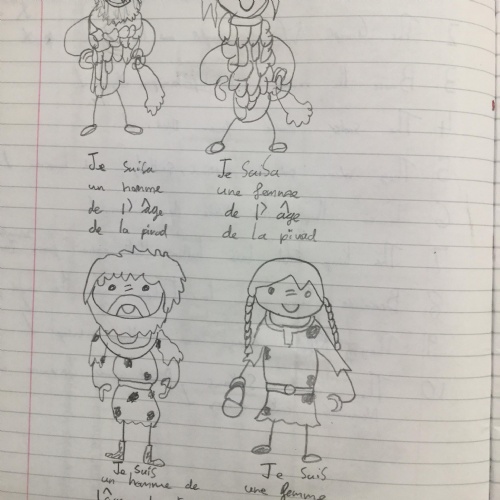 Je suisa
un homme
de l'âge
de la pivod
Je Suisa
une femme
de l'âge
de la pivad
Je suis
un homme de
Je Suis
une femme